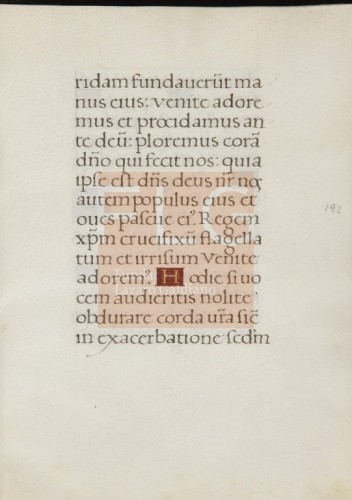 ridam fundauerūt ma
nus eius: venite adore
mus et procidamus an
te deū: ploremus corā
dn̄o qui fecit nos: quia
ipse est dn̄s deus nr̄ nos
autem populus eius et
oues pascue ei⁹. Regem
xp̄m crucifixū flagella
tum et irrisum Venite
adorem⁹. Hodie si uo
cem audieritis nolite
obdurare corda ur̄a sic̄
in exacerbatione sed̄m
192